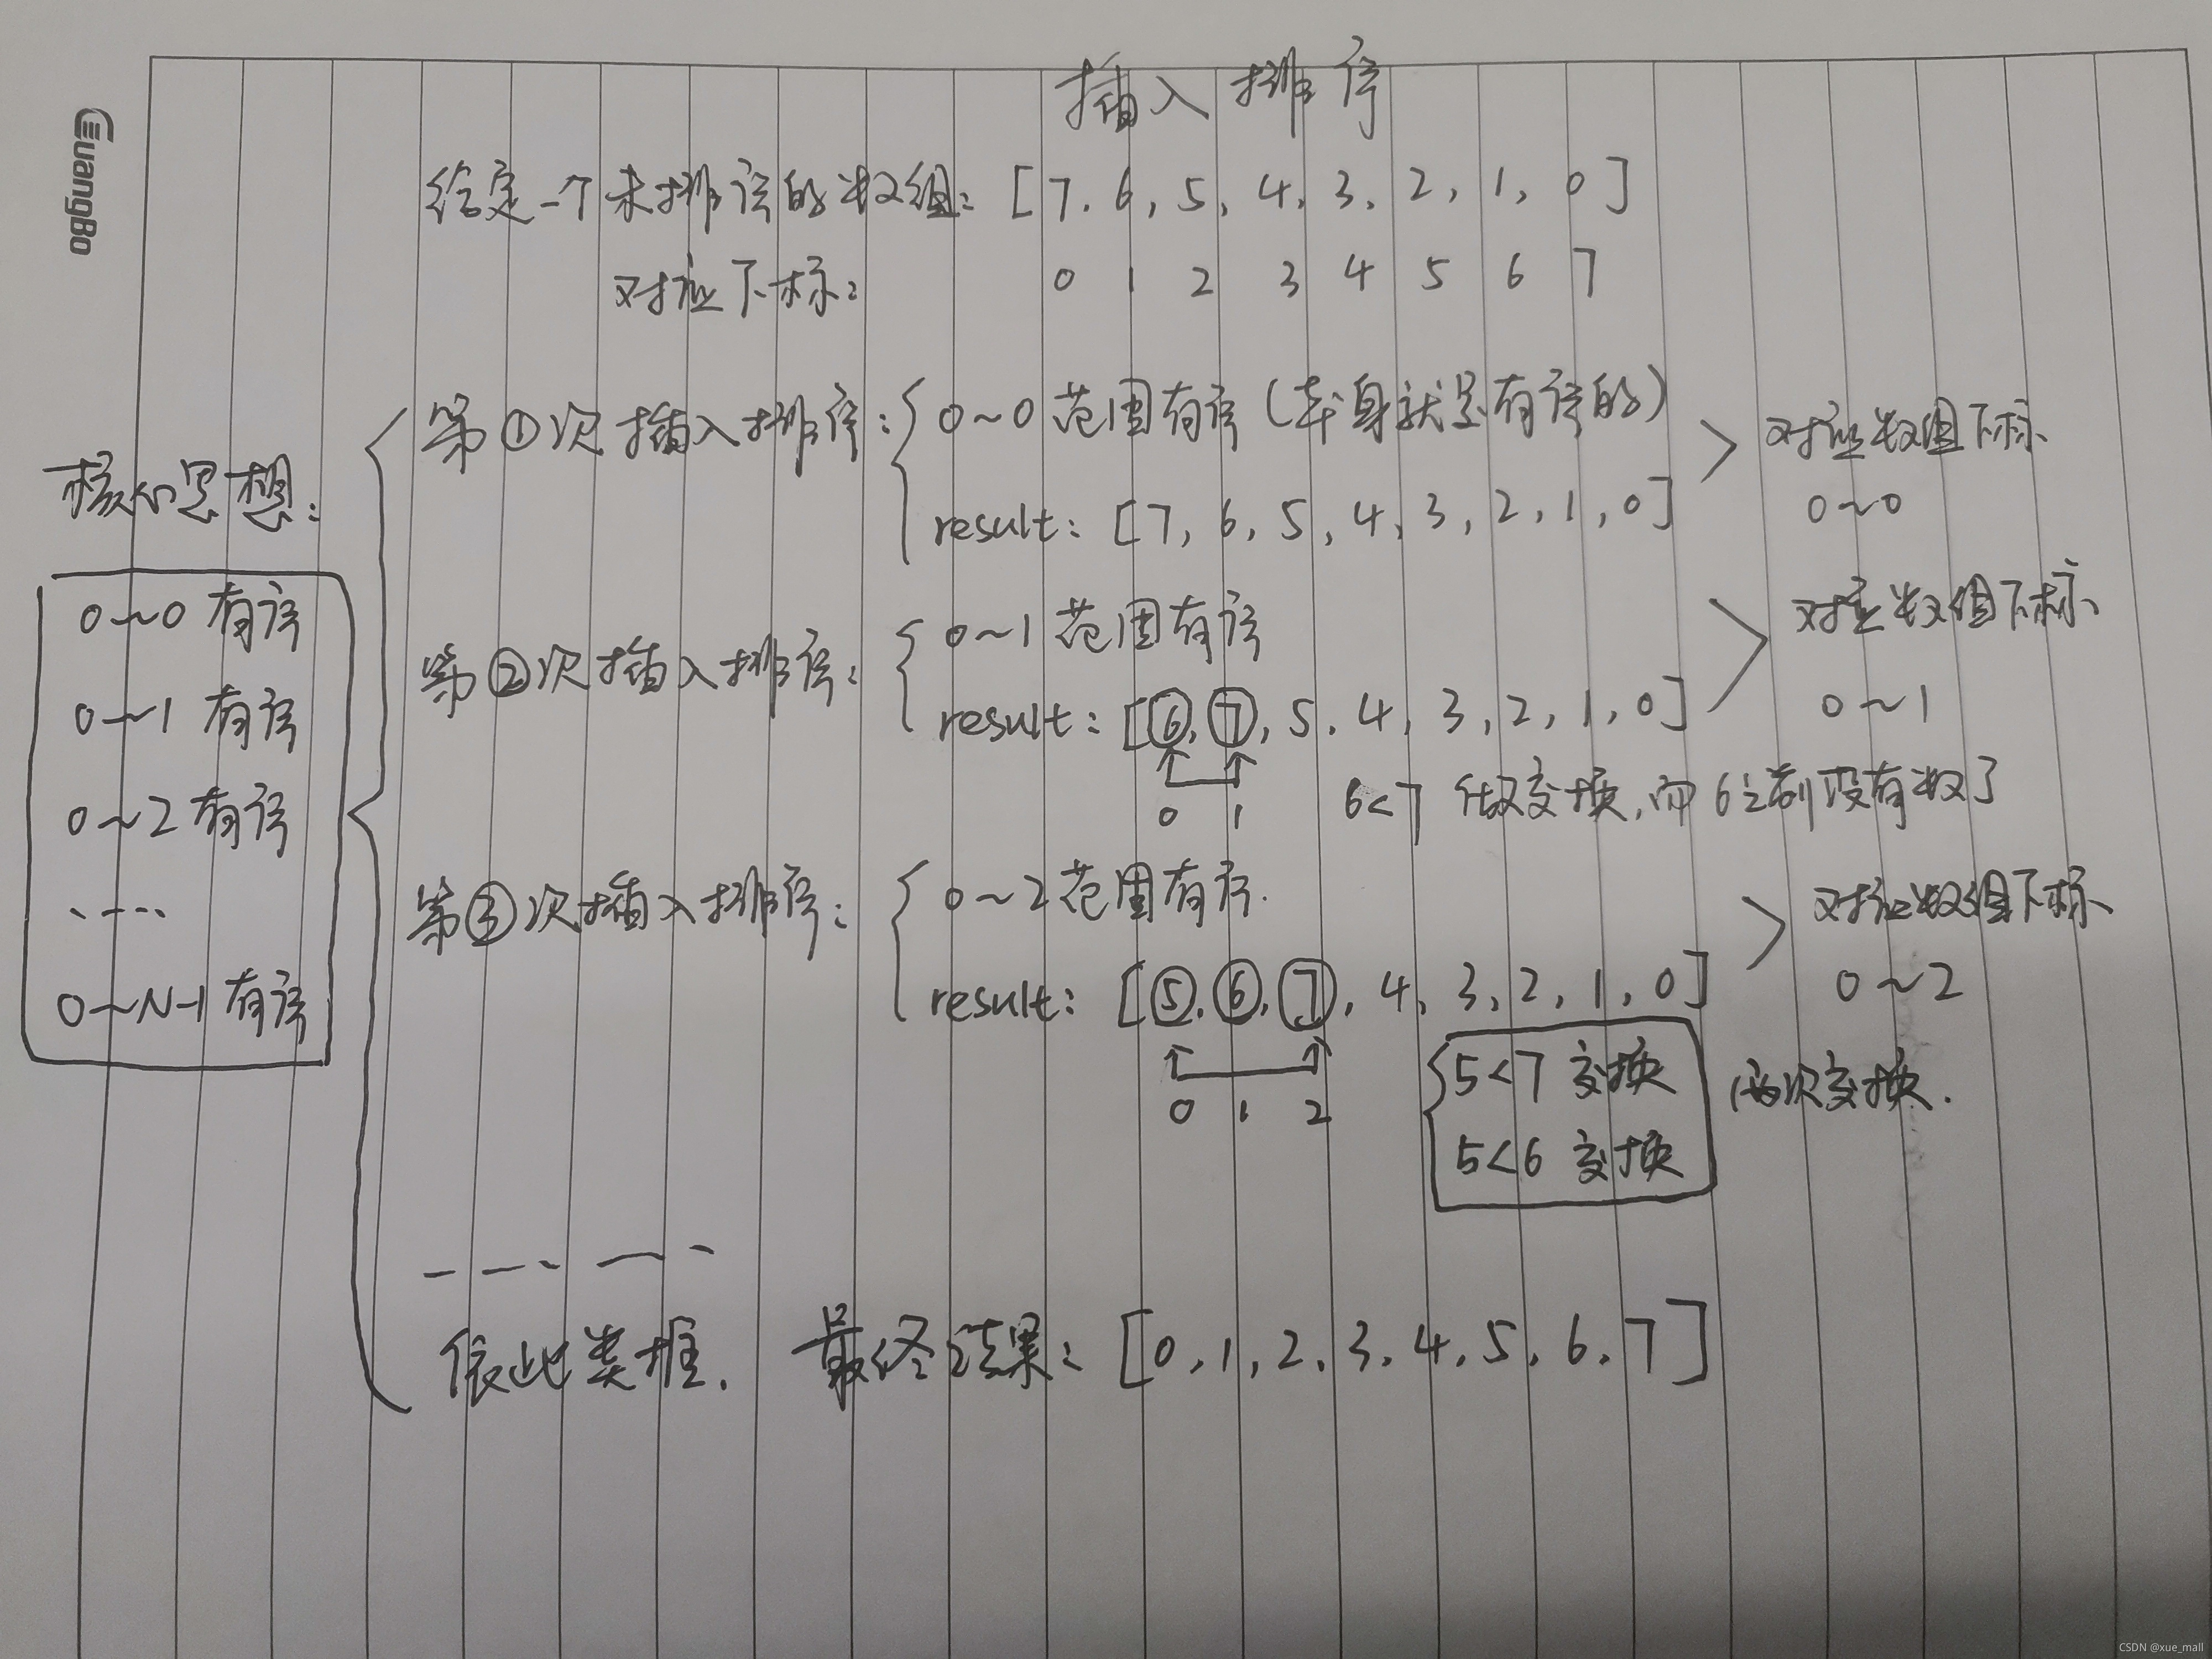 插入排序
GuangBo
给定一个未排序的数组: [7, 6, 5, 4, 3, 2, 1, 0]
对应下标: 0 1 2 3 4 5 6 7
核心思想:
0~0 有序
0~1 有序
0~2 有序
.....
0~N-1 有序
第①次插入排序: 0~0 范围有序 (本身就是有序的)
result: [7, 6, 5, 4, 3, 2, 1, 0]
对应数组下标
0~0
第②次插入排序: 0~1 范围有序
result: [⑥, ⑦, 5, 4, 3, 2, 1, 0]
对应数组下标
0~1
0 1
6<7 做交换, 而 6之前没有数了
第③次插入排序: 0~2 范围有序.
result: [⑤, ⑥, ⑦, 4, 3, 2, 1, 0]
对应数组下标
0~2
0 1 2
5<7 交换
5<6 交换
两次交换.
依此类推. 最终结果: [0, 1, 2, 3, 4, 5, 6, 7]
CSDN @xue_mall